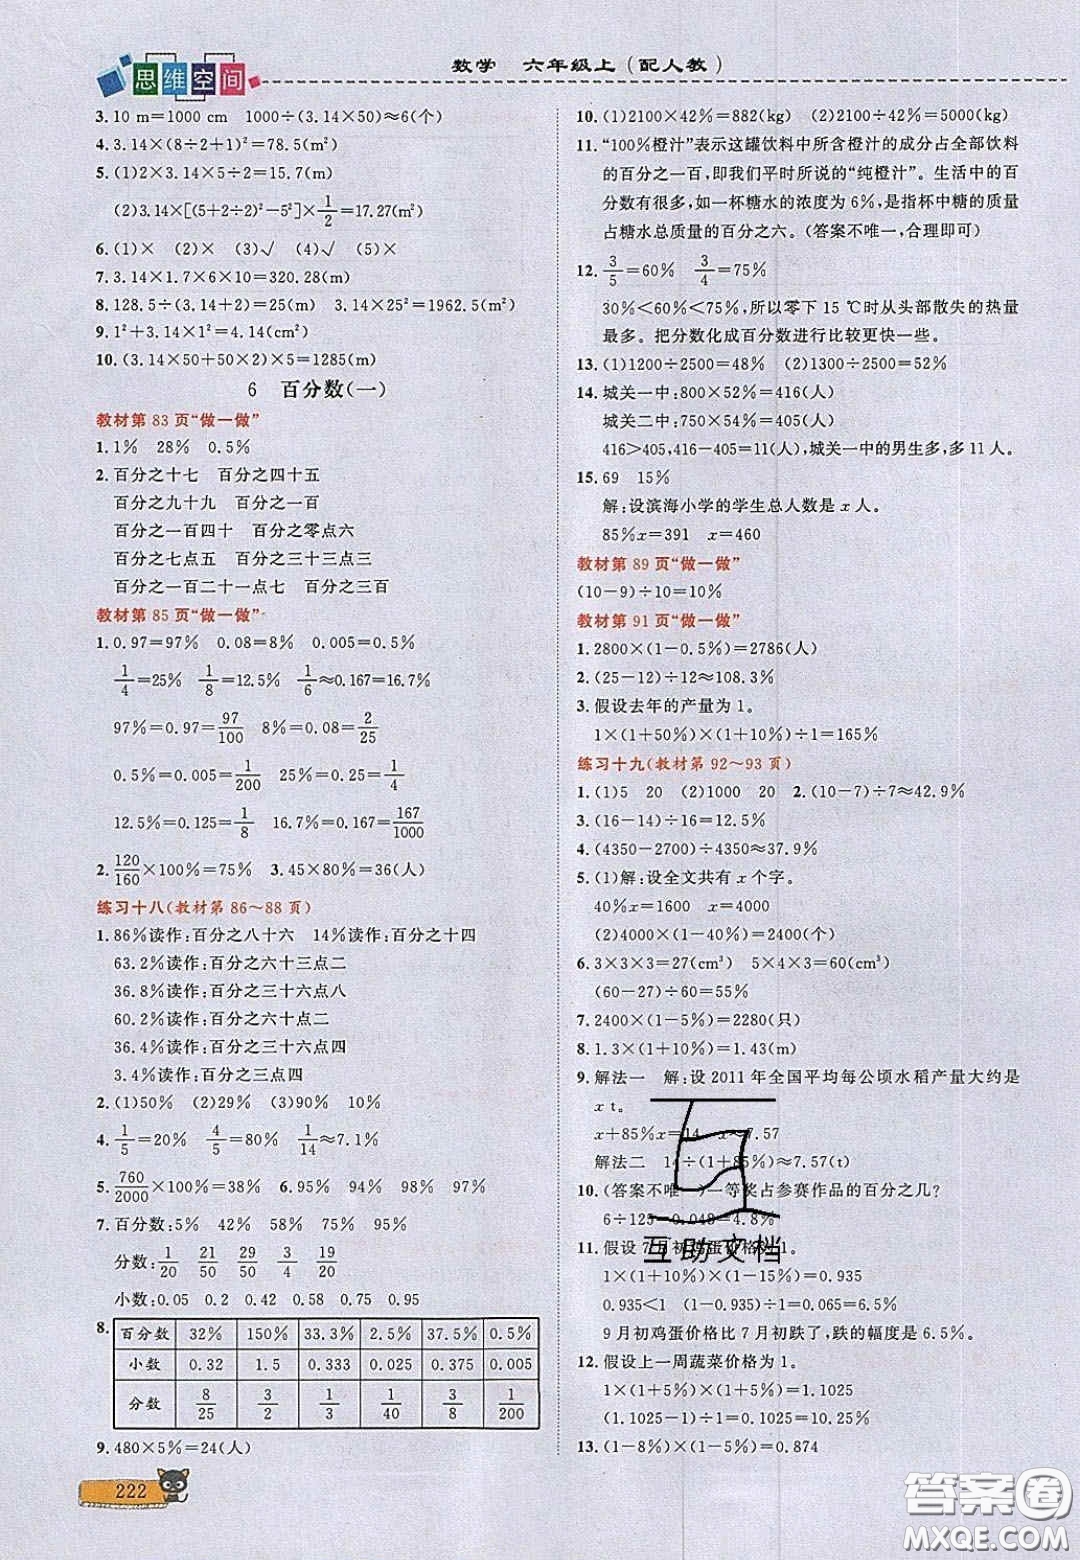 思维空间
数学 六年级上(配人教)
3. 10 m=1000 cm 1000÷(3.14×50)≈6(个)
4. 3.14×(8÷2+1)²=78.5(m²)
5. (1)2×3.14×5÷2=15.7(m)
(2)3.14×[(5+2÷2)²-5²]×1/2=17.27(m²)
6. (1)× (2)× (3)√ (4)√ (5)×
7. 3.14×1.7×6×10=320.28(m)
8. 128.5÷(3.14+2)=25(m) 3.14×25²=1962.5(m²)
9. 1²+3.14×1²=4.14(cm²)
10. (3.14×50+50×2)×5=1285(m)
6 百分数(一)
教材第 83 页“做一做”
1. 1% 28% 0.5%
2. 百分之十七 百分之四十五
百分之九十九 百分之一百
百分之一百四十 百分之零点六
百分之七点五 百分之三十三点三
百分之一百二十一点七 百分之三百
教材第 85 页“做一做”
1. 0.97=97% 0.08=8% 0.005=0.5%
1/4=25% 1/8=12.5% 1/6≈0.167=16.7%
97%=0.97=97/100 8%=0.08=2/25
0.5%=0.005=1/200 25%=0.25=1/4
12.5%=0.125=1/8 16.7%=0.167=167/1000
2. 120/160×100%=75% 3. 45×80%=36(人)
练习十八(教材第 86～88 页)
1. 86%读作:百分之八十六 14%读作:百分之十四
63.2%读作:百分之六十三点二
36.8%读作:百分之三十六点八
60.2%读作:百分之六十点二
36.4%读作:百分之三十六点四
3.4%读作:百分之三点四
2. (1)50% (2)29% (3)90% 10%
4. 1/5=20% 4/5=80% 1/14≈7.1%
5. 760/2000×100%=38% 6. 95% 94% 98% 97%
7. 百分数:5% 42% 58% 75% 95%
分数:1/20 21/50 29/50 3/4 19/20
小数:0.05 0.2 0.42 0.58 0.75 0.95
8. 百分数 32% 150% 33.3% 2.5% 37.5% 0.5%
小数 0.32 1.5 0.333 0.025 0.375 0.005
分数 8/25 3/2 1/3 1/40 3/8 1/200
9. 480×5%=24(人)
222
10. (1)2100×42%=882(kg) (2)2100÷42%=5000(kg)
11. “100%橙汁”表示这罐饮料中所含橙汁的成分占全部饮料
的百分之一百,即我们平时所说的“纯橙汁”。生活中的百
分数有很多,如一杯糖水的浓度为 6%,是指杯中糖的质量
占糖水总质量的百分之六。(答案不唯一,合理即可)
12. 3/5=60% 3/4=75%
30%<60%<75%,所以零下 15 ℃时从头部散失的热量
最多。把分数化成百分数进行比较更快一些。
13. (1)1200÷2500=48% (2)1300÷2500=52%
14. 城关一中:800×52%=416(人)
城关二中:750×54%=405(人)
416>405,416-405=11(人),城关一中的男生多,多 11 人。
15. 69 15%
解:设滨海小学的学生总人数是 x 人。
85%x=391 x=460
教材第 89 页“做一做”
(10-9)÷10=10%
教材第 91 页“做一做”
1. 2800×(1-0.5%)=2786(人)
2. (25-12)÷12≈108.3%
3. 假设去年的产量为 1。
1×(1+50%)×(1+10%)÷1=165%
练习十九(教材第 92～93 页)
1. (1)5 20 (2)1000 20 2. (10-7)÷7≈42.9%
3. (16-14)÷16=12.5%
4. (4350-2700)÷4350≈37.9%
5. (1)解:设全文共有 x 个字。
40%x=1600 x=4000
(2)4000×(1-40%)=2400(个)
6. 3×3×3=27(cm³) 5×4×3=60(cm³)
(60-27)÷60=55%
7. 2400×(1-5%)=2280(只)
8. 1.3×(1+10%)=1.43(m)
9. 解法一 解:设 2011 年全国平均每公顷水稻产量大约是
x t。
x+85%x=14 x≈7.57
解法二 14÷(1+85%)≈7.57(t)
10. (答案不唯一)一等奖占参赛作品的百分之几?
6÷125=0.048=4.8%
11. 假设 7 月初鸡蛋价格为 1。
1×(1+10%)×(1-15%)=0.935
0.935<1 (1-0.935)÷1=0.065=6.5%
9 月初鸡蛋价格比 7 月初跌了,跌的幅度是 6.5%。
12. 假设上一周蔬菜价格为 1。
1×(1+5%)×(1+5%)=1.1025
(1.1025-1)÷1=0.1025=10.25%
13. (1-8%)×(1-5%)=0.874
互助文档
答案圈
MXQE.COM